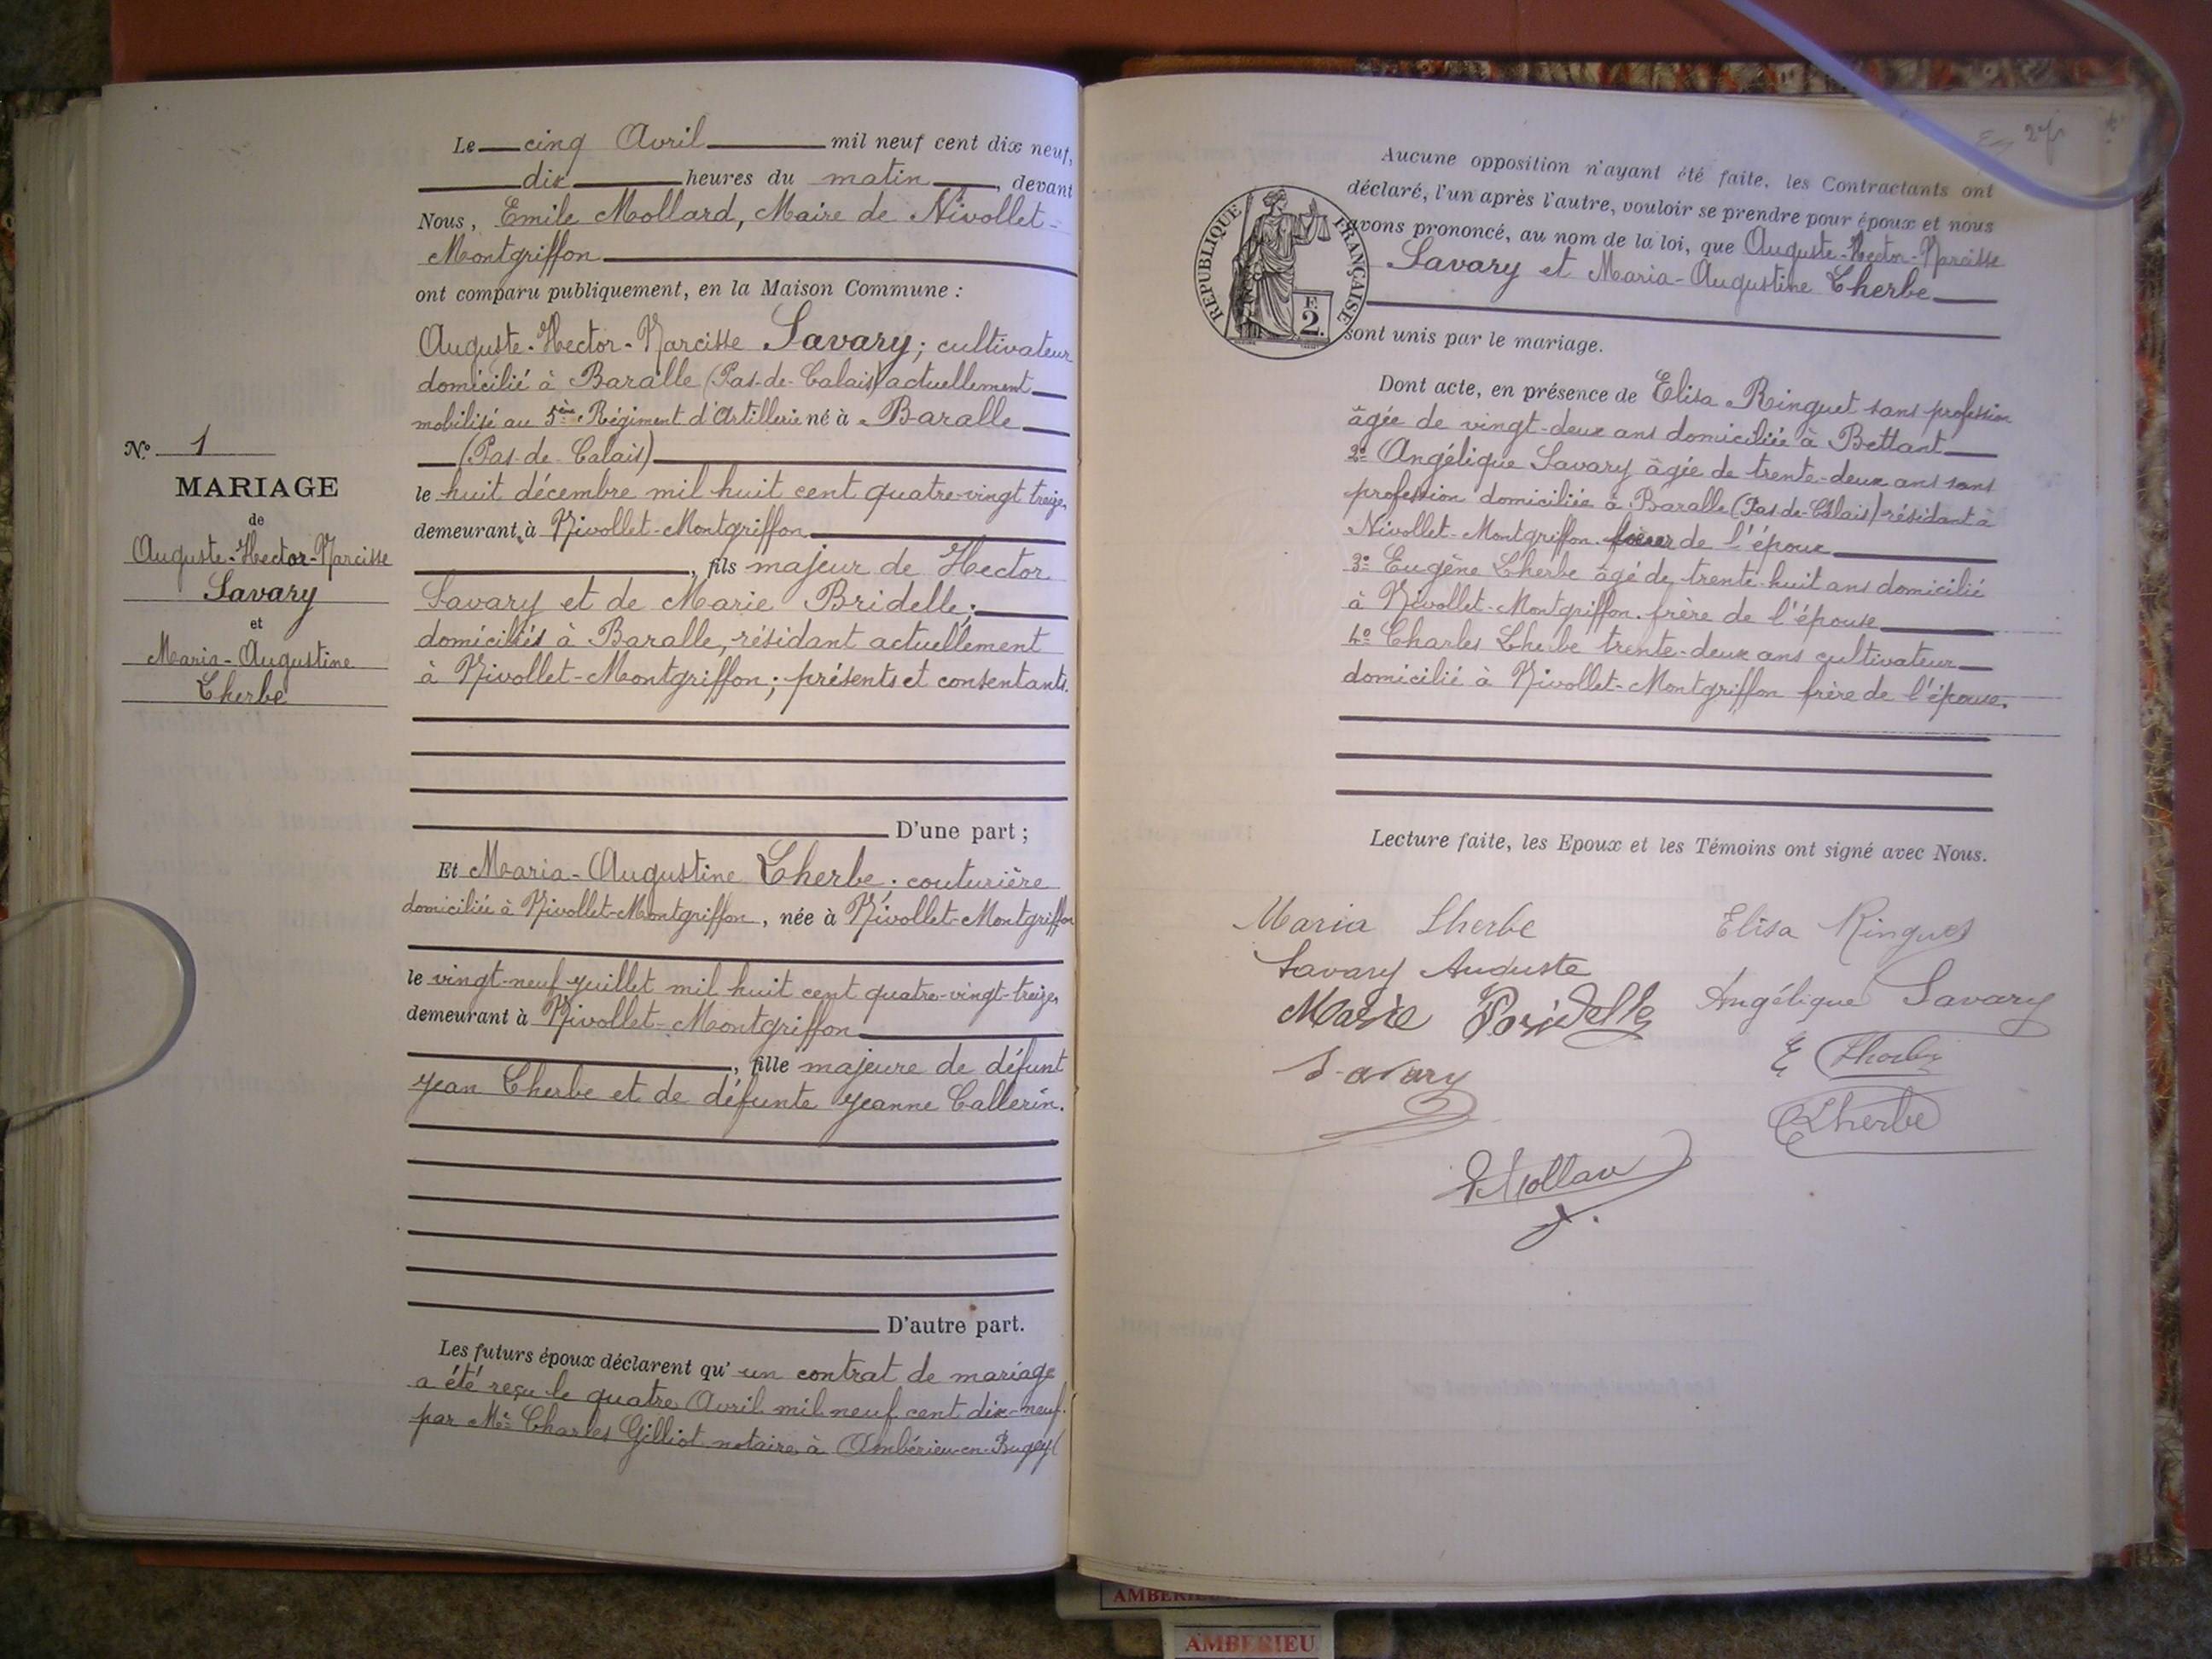 N° 1
MARIAGE
de
Auguste-Hector-Narcisse
Savary
et
Maria-Augustine
Lherbe
Le cinq Avril mil neuf cent dix neuf,
dix heures du matin, devant
Nous, Emile Mollard, Maire de Nivollet-
Montgriffon
ont comparu publiquement, en la Maison Commune :
Auguste-Hector-Narcisse Savary; cultivateur
domicilié à Baralle (Pas-de-Calais) actuellement
mobilisé au 5ème Régiment d'Artillerie né à Baralle
(Pas-de-Calais)
le huit décembre mil huit cent quatre-vingt treize,
demeurant à Nivollet-Montgriffon
, fils majeur de Hector
Savary et de Marie Bridelle;
domiciliés à Baralle, résidant actuellement
à Nivollet-Montgriffon; présents et consentants.
D'une part ;
Et Maria-Augustine Lherbe; couturière
domiciliée à Nivollet-Montgriffon, née à Nivollet-Montgriffon
le vingt-neuf juillet mil huit cent quatre-vingt-treize,
demeurant à Nivollet-Montgriffon
, fille majeure de défunt
Jean Lherbe et de défunte Jeanne Callerin.
D'autre part.
Les futurs époux déclarent qu' un contrat de mariage
a été reçu le quatre Avril mil neuf cent dix-neuf.
par Me Charles Gilliot notaire à Ambérieu-en-Bugey
27
REPUBLIQUE FRANÇAISE
E
2.
Aucune opposition n'ayant été faite, les Contractants ont
déclaré, l'un après l'autre, vouloir se prendre pour époux et nous
avons prononcé, au nom de la loi, que Auguste-Hector-Narcisse
Savary et Maria-Augustine Lherbe
sont unis par le mariage.
Dont acte, en présence de Elisa Ringuet sans profession
âgée de vingt-deux ans domiciliée à Bettant
2° Angélique Savary âgée de trente-deux ans sans
profession domiciliée à Baralle (Pas-de-Calais) résidant à
Nivollet-Montgriffon. soeur de l'époux
3° Eugène Lherbe âgé de trente-huit ans domicilié
à Nivollet-Montgriffon. frère de l'épouse
4° Charles Lherbe trente-deux ans cultivateur
domicilié à Nivollet-Montgriffon frère de l'épouse.
Lecture faite, les Epoux et les Témoins ont signé avec Nous.
Maria Lherbe
Elisa Ringuet
Savary Auguste
Angélique Savary
Marie Bridelle
E Lherbe
Savary
C Lherbe
E Mollard
AMBERIEU
AMBERIEU